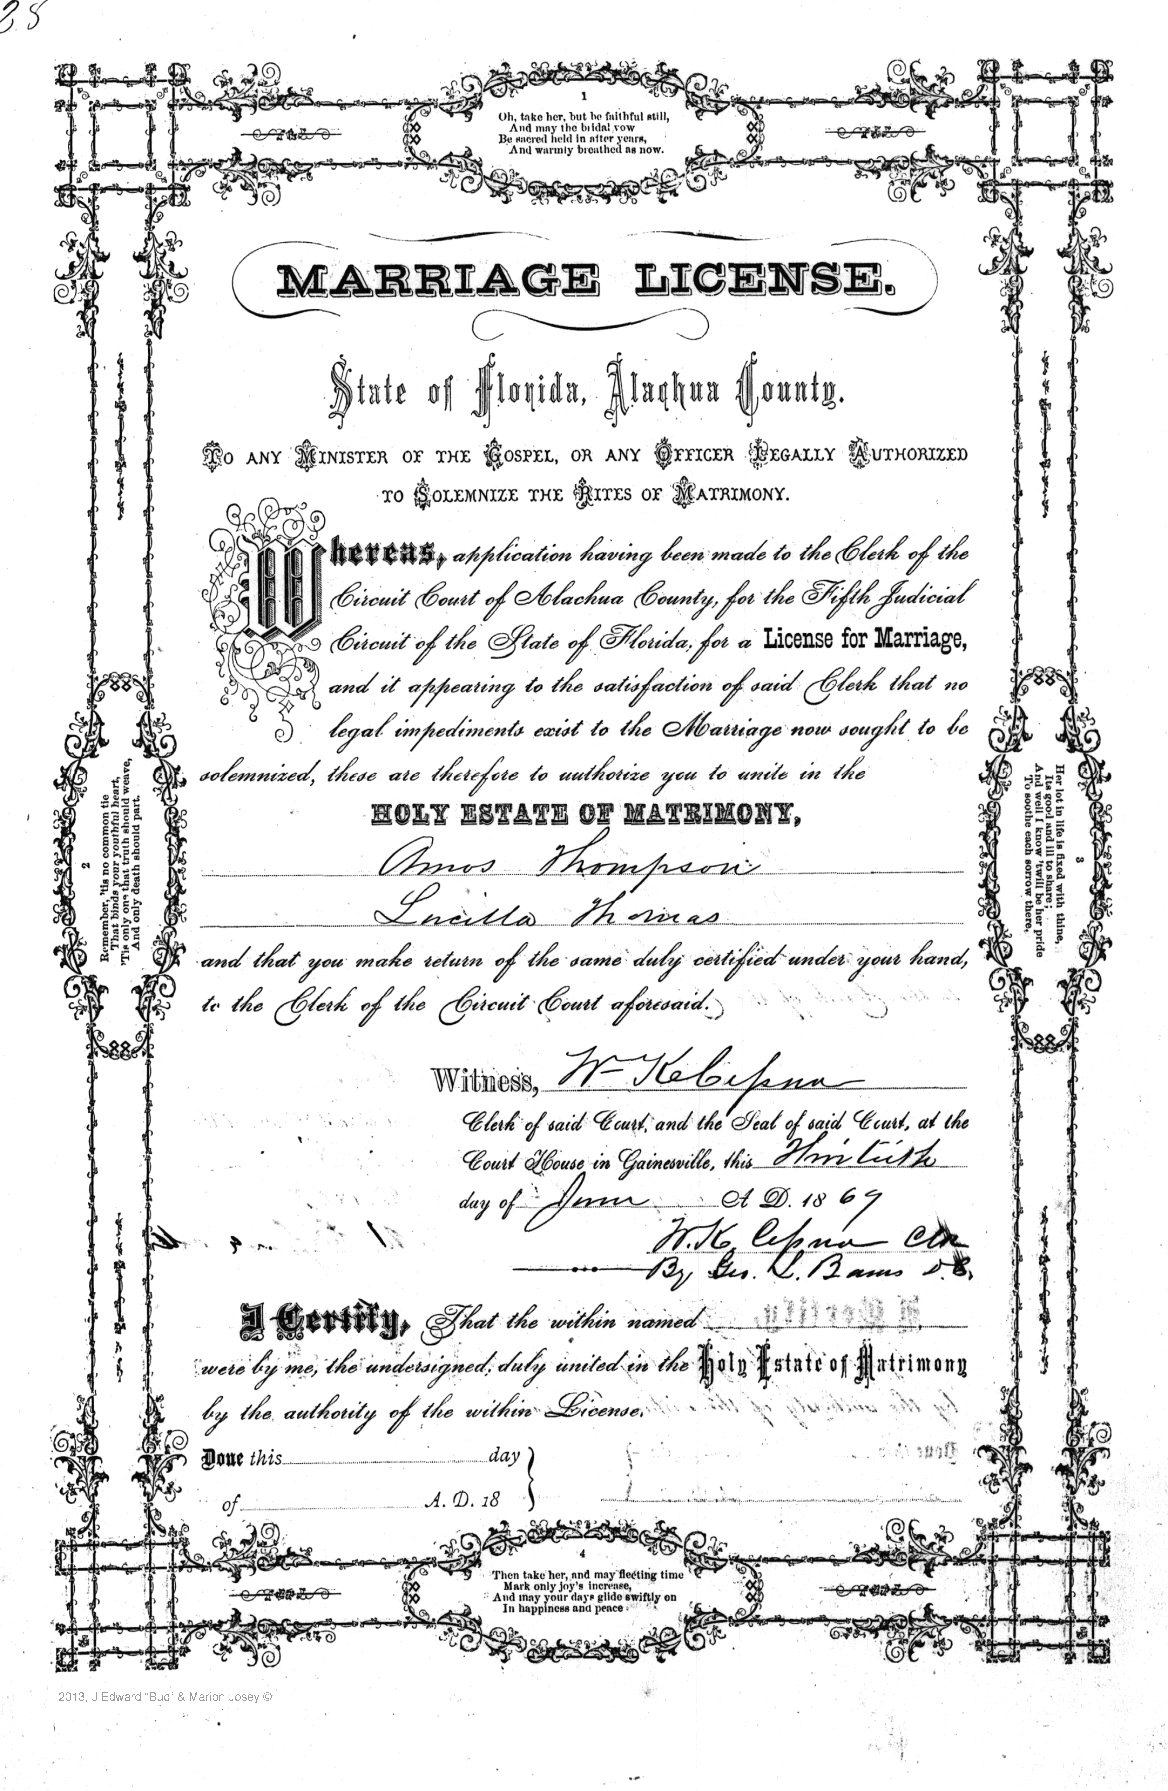 28
1
Oh, take her, but be faithful still,
And may the bridal vow
Be sacred held in after years,
And warmly breathed as now.
MARRIAGE LICENSE.
State of Florida, Alachua County.
TO ANY MINISTER OF THE GOSPEL, OR ANY OFFICER LEGALLY AUTHORIZED
TO SOLEMNIZE THE RITES OF MATRIMONY.
Whereas, application having been made to the Clerk of the
Circuit Court of Alachua County, for the Fifth Judicial
Circuit of the State of Florida, for a License for Marriage,
and it appearing to the satisfaction of said Clerk that no
legal impediments exist to the Marriage now sought to be
solemnized, these are therefore to authorize you to unite in the
HOLY ESTATE OF MATRIMONY,
Amos Thompson
Lucilla Thomas
and that you make return of the same duly certified under your hand,
to the Clerk of the Circuit Court aforesaid.
2
Remember, 'tis no common tie
That binds your youthful heart,
'Tis only one that truth should weave,
And only death should part.
3
Her lot in life is fixed with thine,
Its good and ill to share;
And well I know 'twill be her pride
To soothe each sorrow there,
Witness, Wm K Cessna
Clerk of said Court, and the Seal of said Court, at the
Court House in Gainesville, this
day of June A. D. 1869
W. K. Cessna Clk
By Geo. L. Barns D. C.
I Certify, That the within named
were by me, the undersigned, duly united in the Holy Estate of Matrimony
by the authority of the within License.
Done this day
of A. D. 18
4
Then take her, and may fleeting time
Mark only joy's increase,
And may your days glide swiftly on
In happiness and peace
2013, J Edward "Bud" & Marion Josey ©